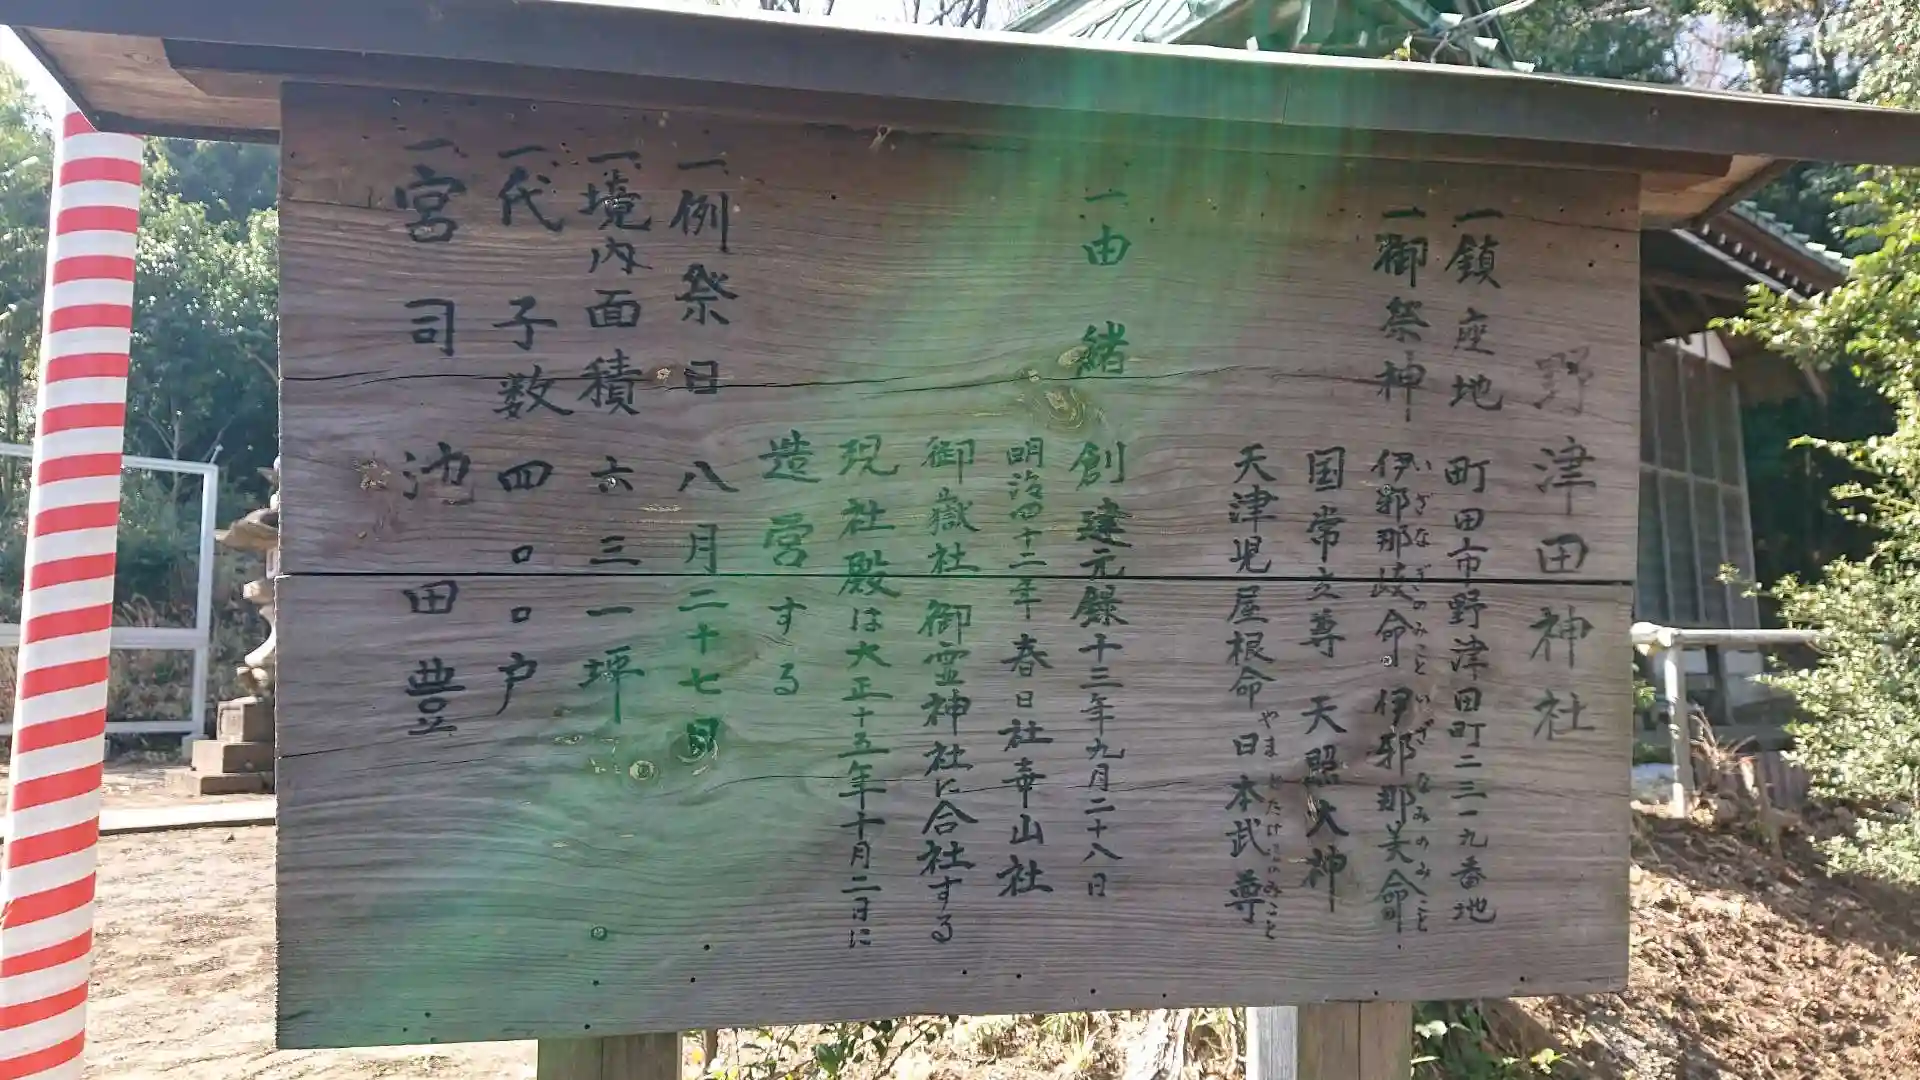 野津田神社
一鎮座地 町田市野津田町二三一九番地
一御祭神 伊邪那岐命 伊邪那美命
いざなぎのみこと いざなみのみこと
国常立尊 天照大神
天津児屋根命 日本武尊
やまとたけるのみこと
一由緒 創建元録十三年九月二十八日
明治四十二年 春日社 華山社
御嶽社 御霊神社に合社する
現社殿は大正十五年十月二日に
造営する
一例祭日 八月二十七日
一境内面積 六三一坪
一氏子数 四〇〇戸
一宮司 池田豊